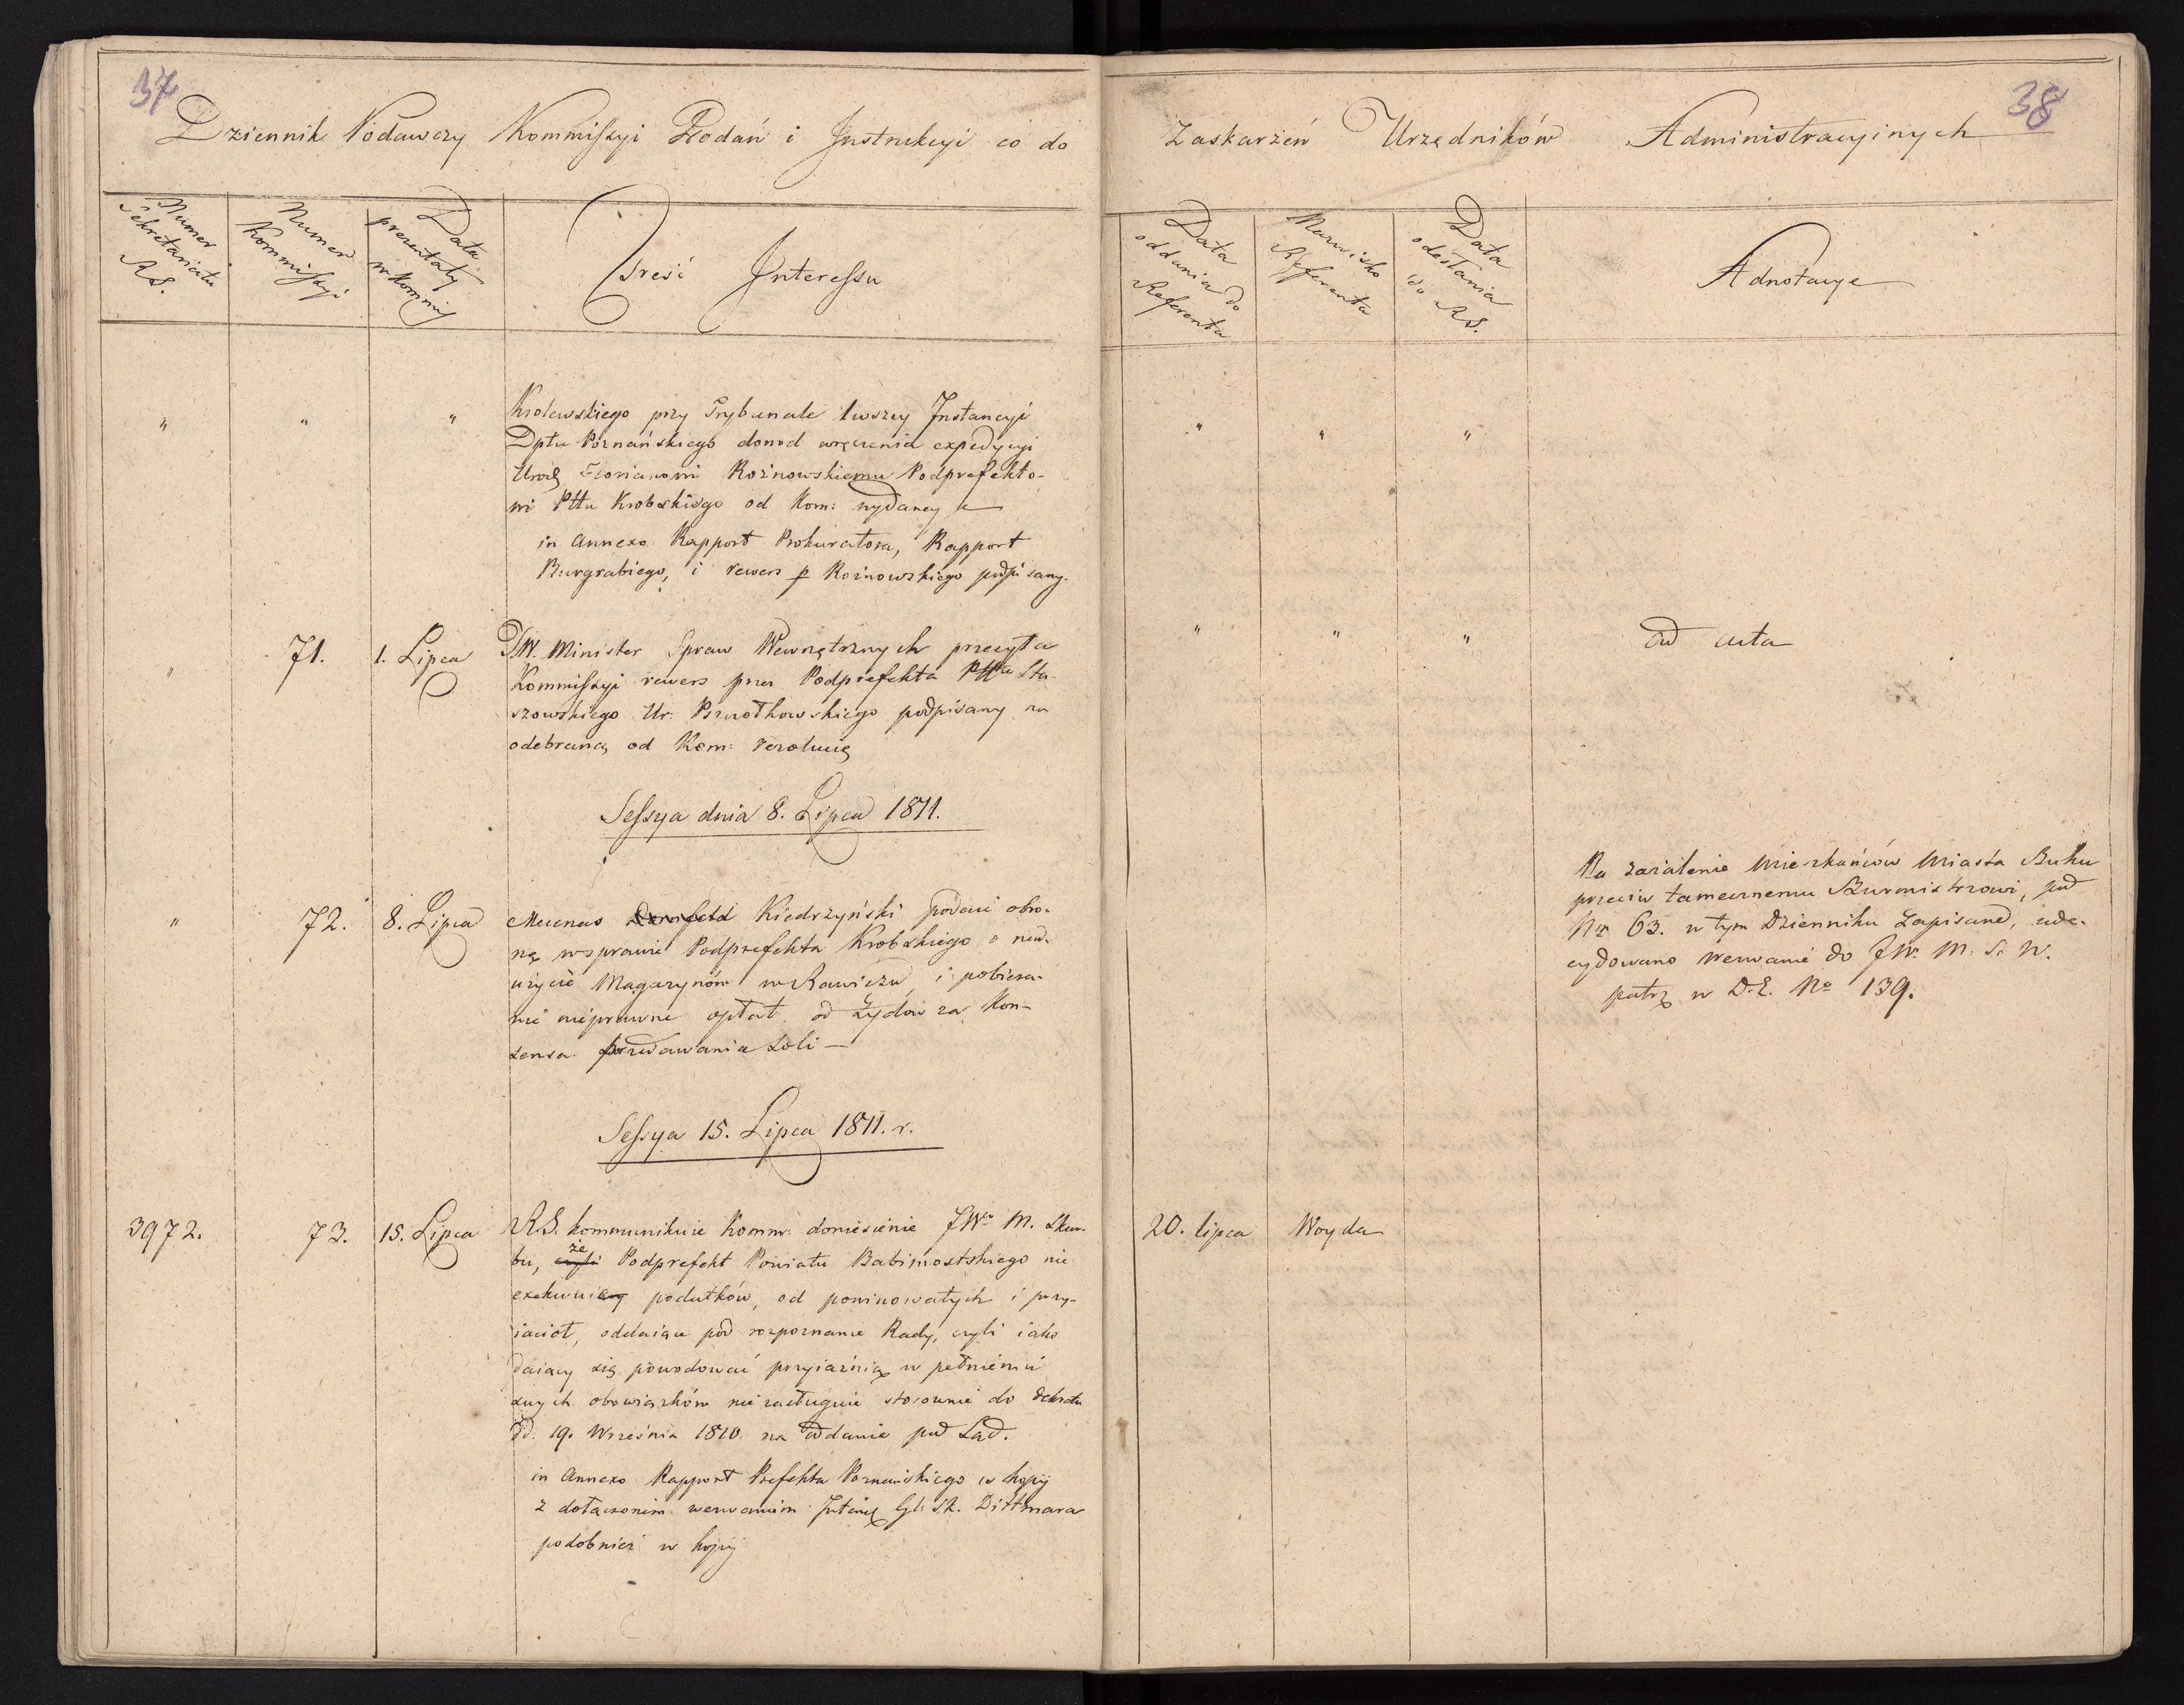 37
Dziennik Podawczy Kommissyi Podań i Instrukcyi co do
Numer Sekretariatu RS.
Numer Kommissyi
Data prezentaty w Kommis
Treść Interessu
" " " Krolewskiego przy Trybunale 1wszey Instancyi
Dptu Poznańskiego dowod wręczenia expedycyi
Urod Floryanowi Rożnowskiemu Podprefekto-
wi Pttu Krobskiego od Kom: wydaney
in Annexo Rapport Prokuratora, Rapport
Burgrabiego, i rewers p Rożnowskiego podpisany.
" 71. 1. Lipca JW. Minister Spraw Wewnętrznych przesyła
Kommissyi rewers przez Podprefekta Pttu Sta-
szowskiego Ur: podpisany na
odebraną od Kom: rezolucię
Sessya dnia 8. Lipca 1811.
" 72. 8. Lipca Mecenas Kiedrzyński podaie obro-
nę w sprawie Podprefekta Krobskiego o nad-
użycie Magazynów w Rawiczu, i pobiera-
nie nieprawne opłat od Żydow za Kon-
sensa przedawania Soli —
Sessya 15. Lipca 1811. r.
3972. 73. 15. Lipca RS. kommunikuie Komm: doniesienie JWo M. Skar-
bu, że Podprefekt Powiatu Babimostskiego nie
exekwuiąc podatków, od powinowatych i przy-
iaciół, oddaiąc pod rozpoznanie Rady, czyli iako
daiący się powodować przyiaźnią w pełnieniu
swych obowiązków nie zasługuie stosownie do dekretu
dd: 19. Września 1810. na oddanie pod Sąd.
in Annexo Rapport Prefekta Poznańskiego w kopij
z dołączonem wezwaniem Inten Gl: Sk. Dittmara
podobnież w kopij
38
Zaskarżeń Urzędników Administracyinych
Data oddania do Referenta
Nazwisko Referenta
Data odesłania do RS.
Adnotacye
" " "
" " " ad acta
Na zażalenie Mieszkańców Miasta Buku
przeciw tamecznemu Burmistrzowi, pod
Nr 63. w tym Dzienniku zapisane, zade-
cydowano wezwanie do JW. M. S. W.
patrz w D.E. No 139.
20. lipca Woyda